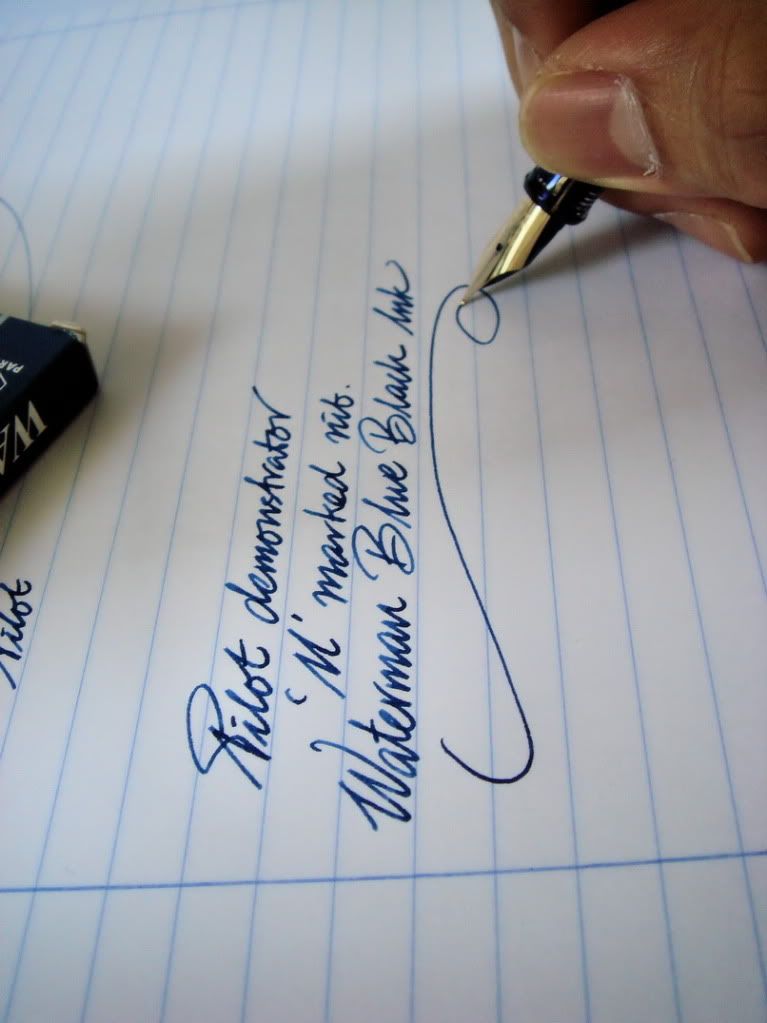 Pilot demonstrator
'M' marked nib.
Waterman Blue Black Ink
Pilot
WA
PAR